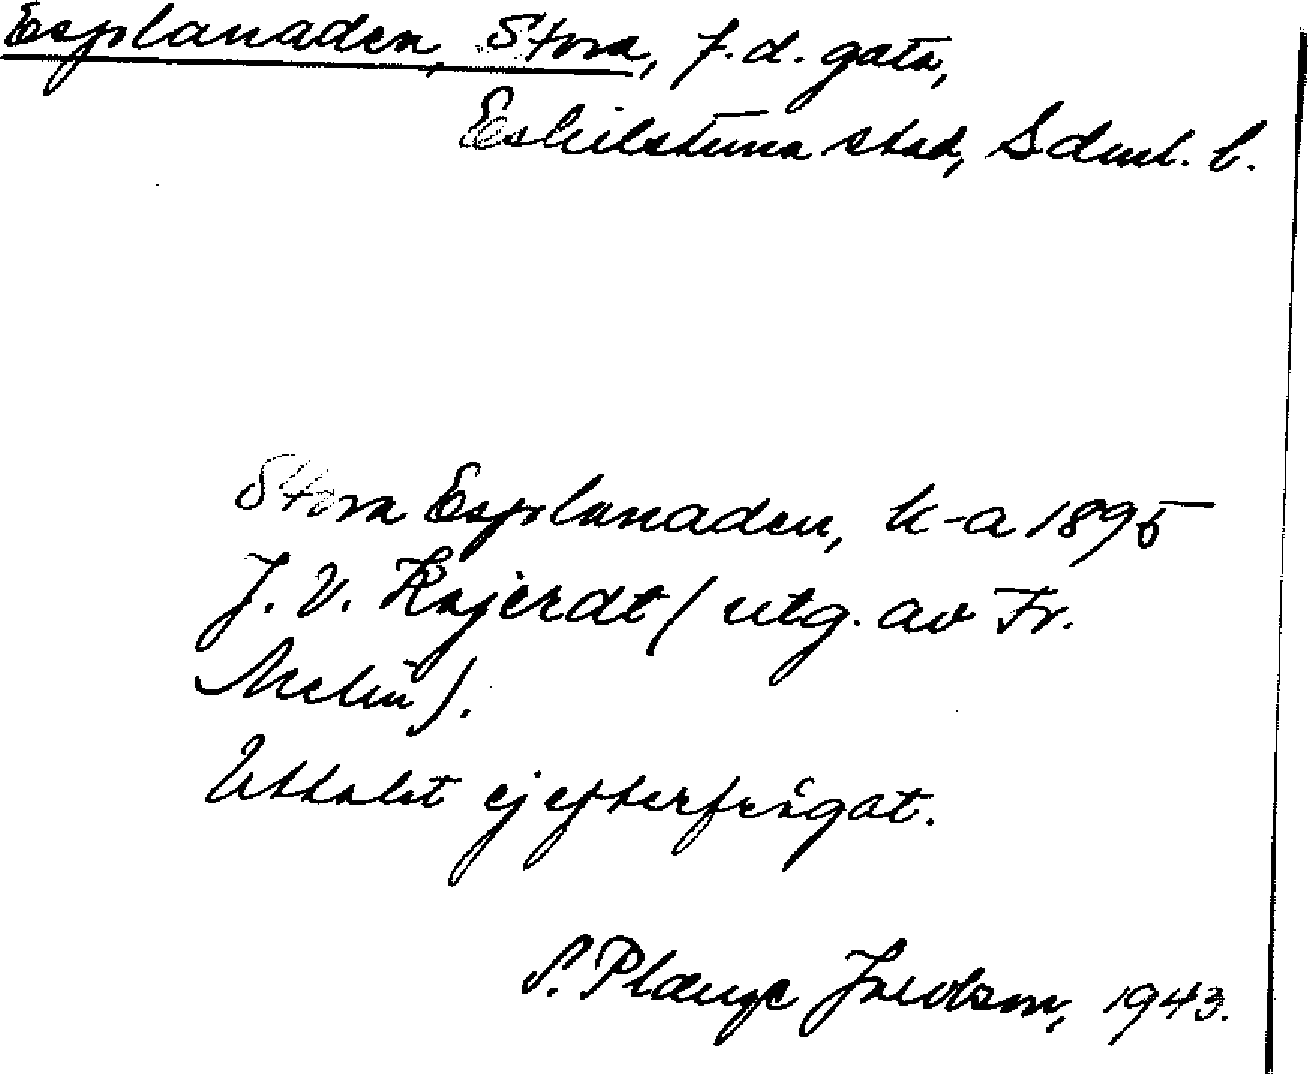 Esplanaden, Stora, f.d. gata,
Eskilstuna stad, Sdml. l.
Stora Esplanaden, k-a 1895
J. V. Kajerdt (utg. av Fr.
Melin).
Uttalet ej efterfrågat.
S. Plænge Jacobson, 1943.